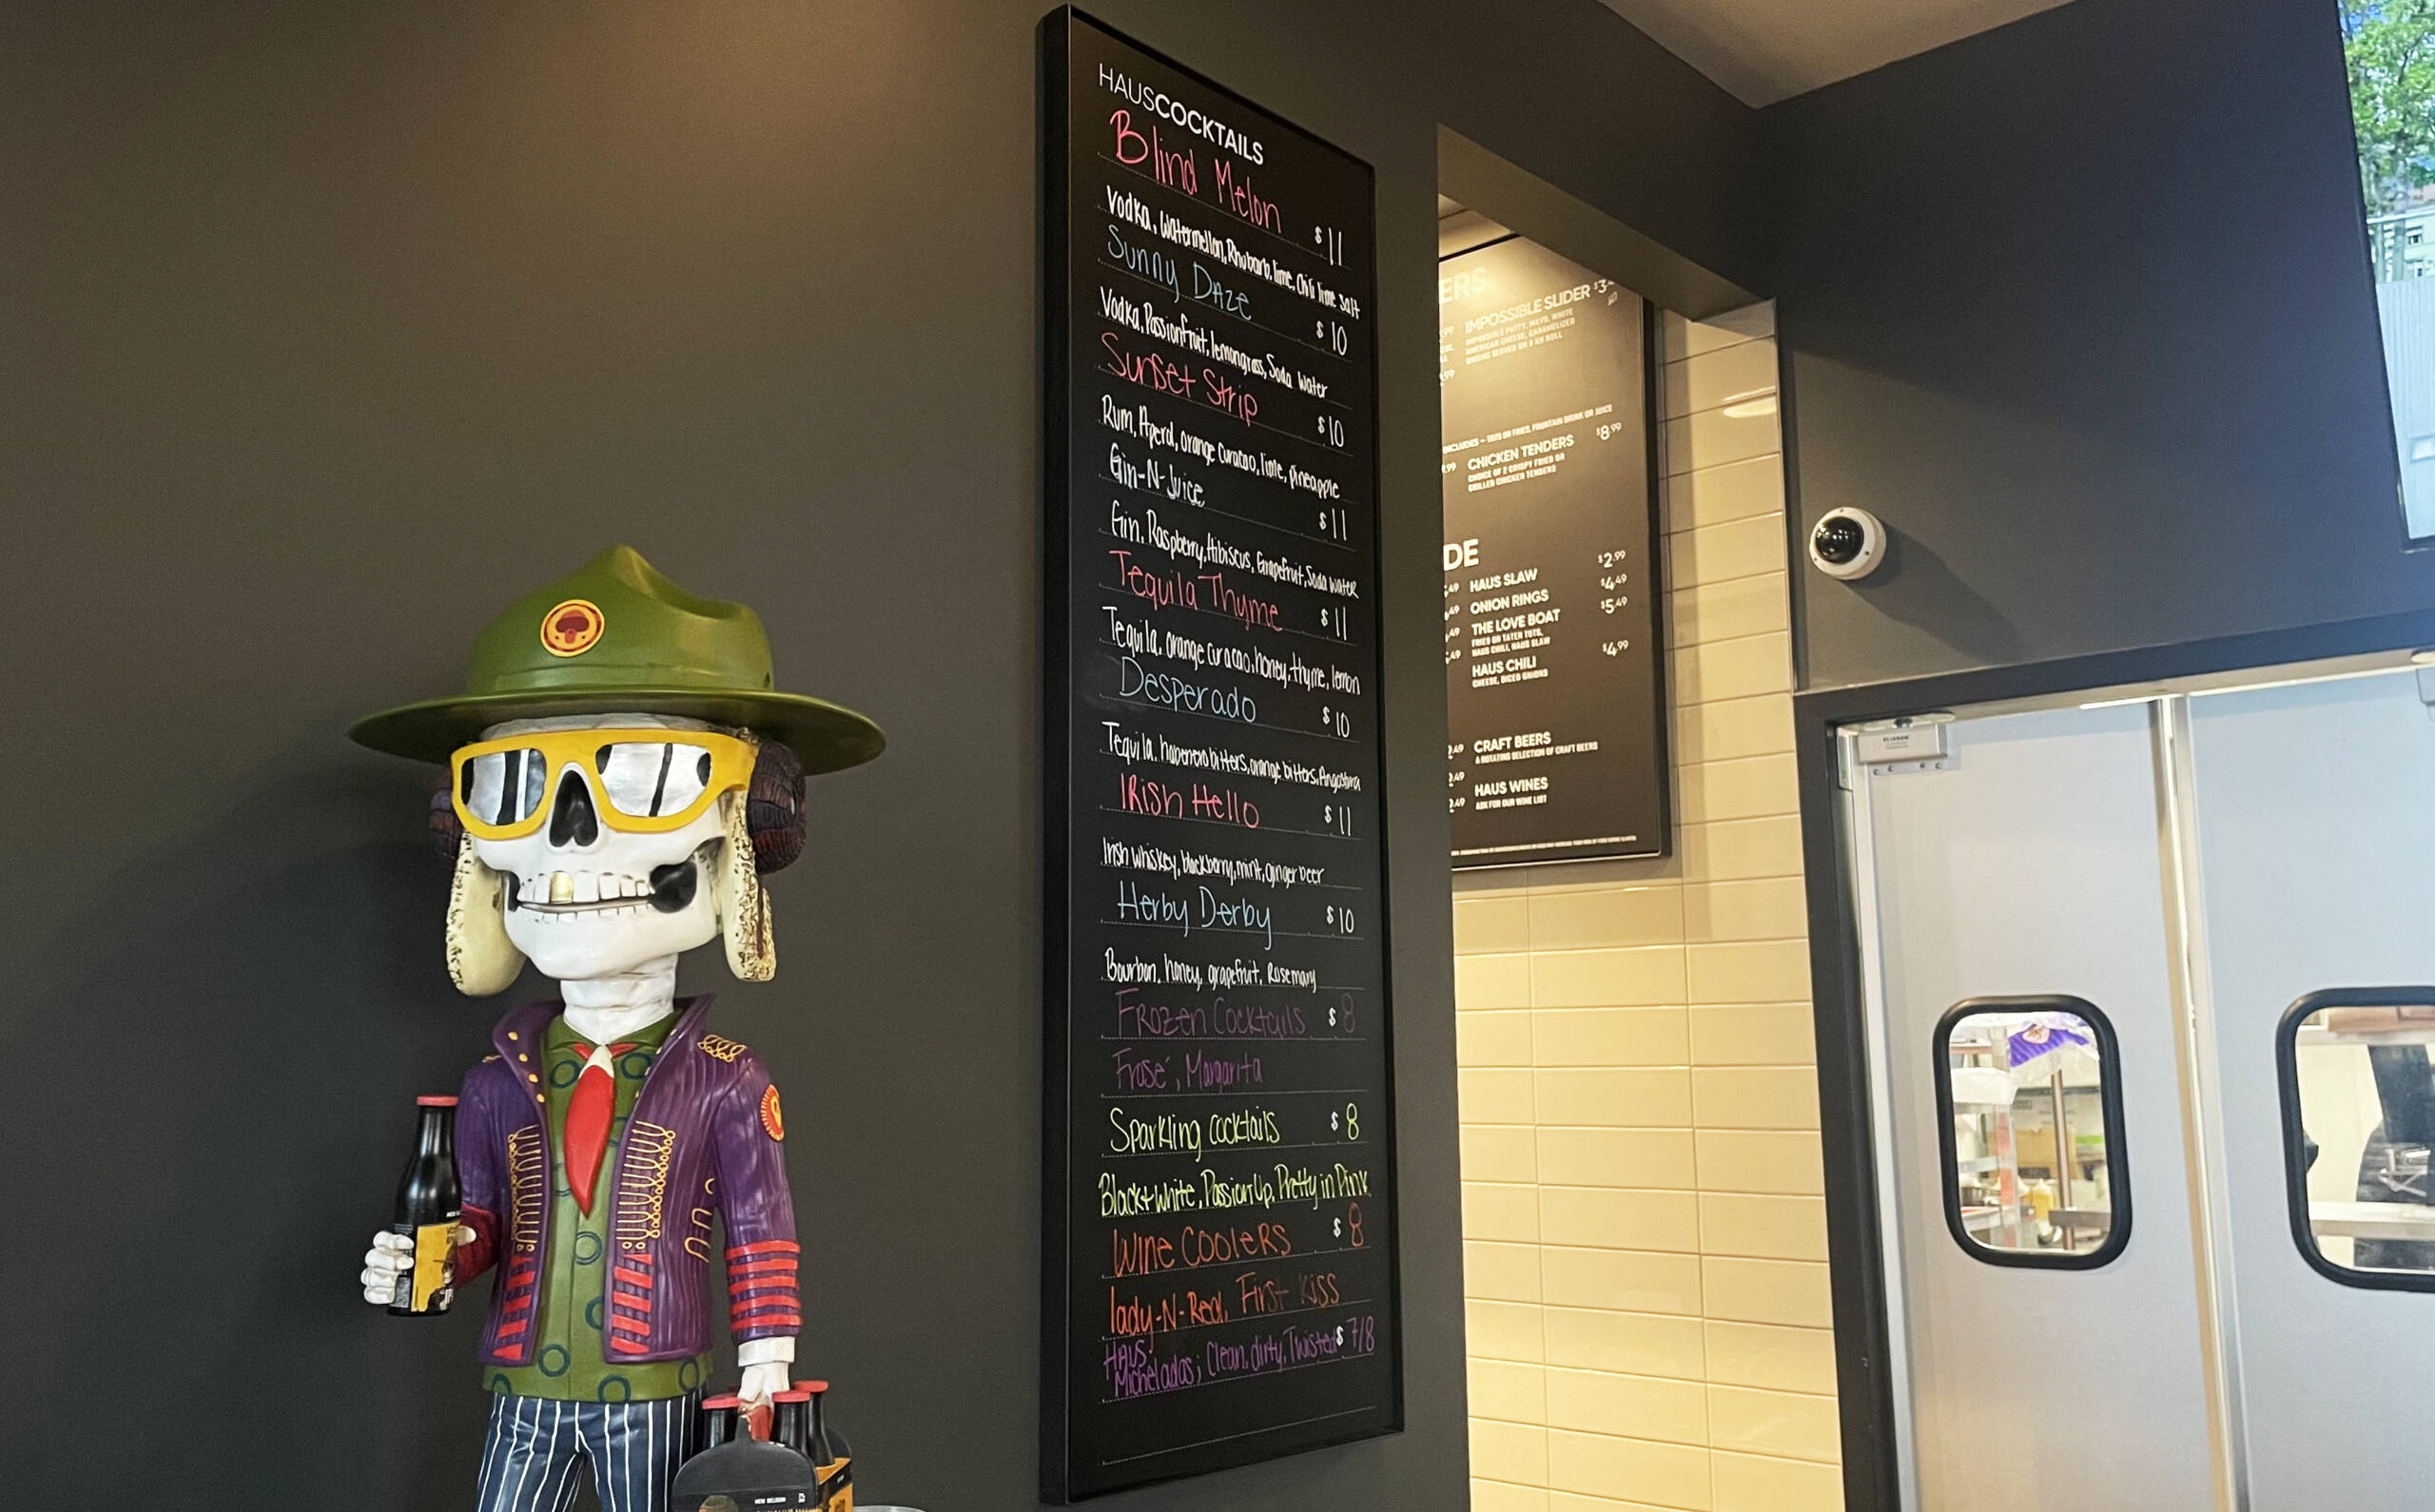 HAUSCOCKTAILS
Blind Melon $11
Vodka, Watermellon, Rhubarb, lime, Chili lime salt
Sunny Daze $10
Vodka, Passionfruit, lemongrass, Soda Water
Sunset Strip $10
Rum, Aperol, orange Curacao, lime, pineapple
Gin-N-Juice $11
Gin, Raspberry, Hibiscus, Grapefruit, Soda water
Tequila Thyme $11
Tequila, orange curacao, honey, thyme, lemon
Desperado $10
Tequila, habenero bitters, orange bitters, Angostura
Irish Hello $11
Irish whiskey, blackberry, mint, ginger beer
Herby Derby $10
Bourbon, honey, grapefruit, Rosemary
Frozen Cocktails $8
Frosé, Margarita
Sparkling cocktails $8
Black+White, Passion Up, Pretty in Pink
Wine Coolers $8
lady-N-Red, First Kiss
HAUS
Micheladas; Clean, dirty, Twisted $7/8
ERS
IMPOSSIBLE SLIDER $3
IMPOSSIBLE PATTY, MAYO, WHITE
AMERICAN CHEESE, CARAMELIZED
ONIONS SERVED ON A KH ROLL
INCLUDES - TOTS OR FRIES, FOUNTAIN DRINK OR JUICE
CHICKEN TENDERS $8.99
CHOICE OF 2 CRISPY FRIED OR
GRILLED CHICKEN TENDERS
DE
HAUS SLAW $2.99
ONION RINGS $4.49
THE LOVE BOAT $5.49
FRIES OR TATER TOTS,
HAUS CHILI, HAUS SLAW
HAUS CHILI $4.99
CHEESE, DICED ONIONS
CRAFT BEERS
A ROTATING SELECTION OF CRAFT BEERS
HAUS WINES
ASK FOR OUR WINE LIST
NEW BELGIUM